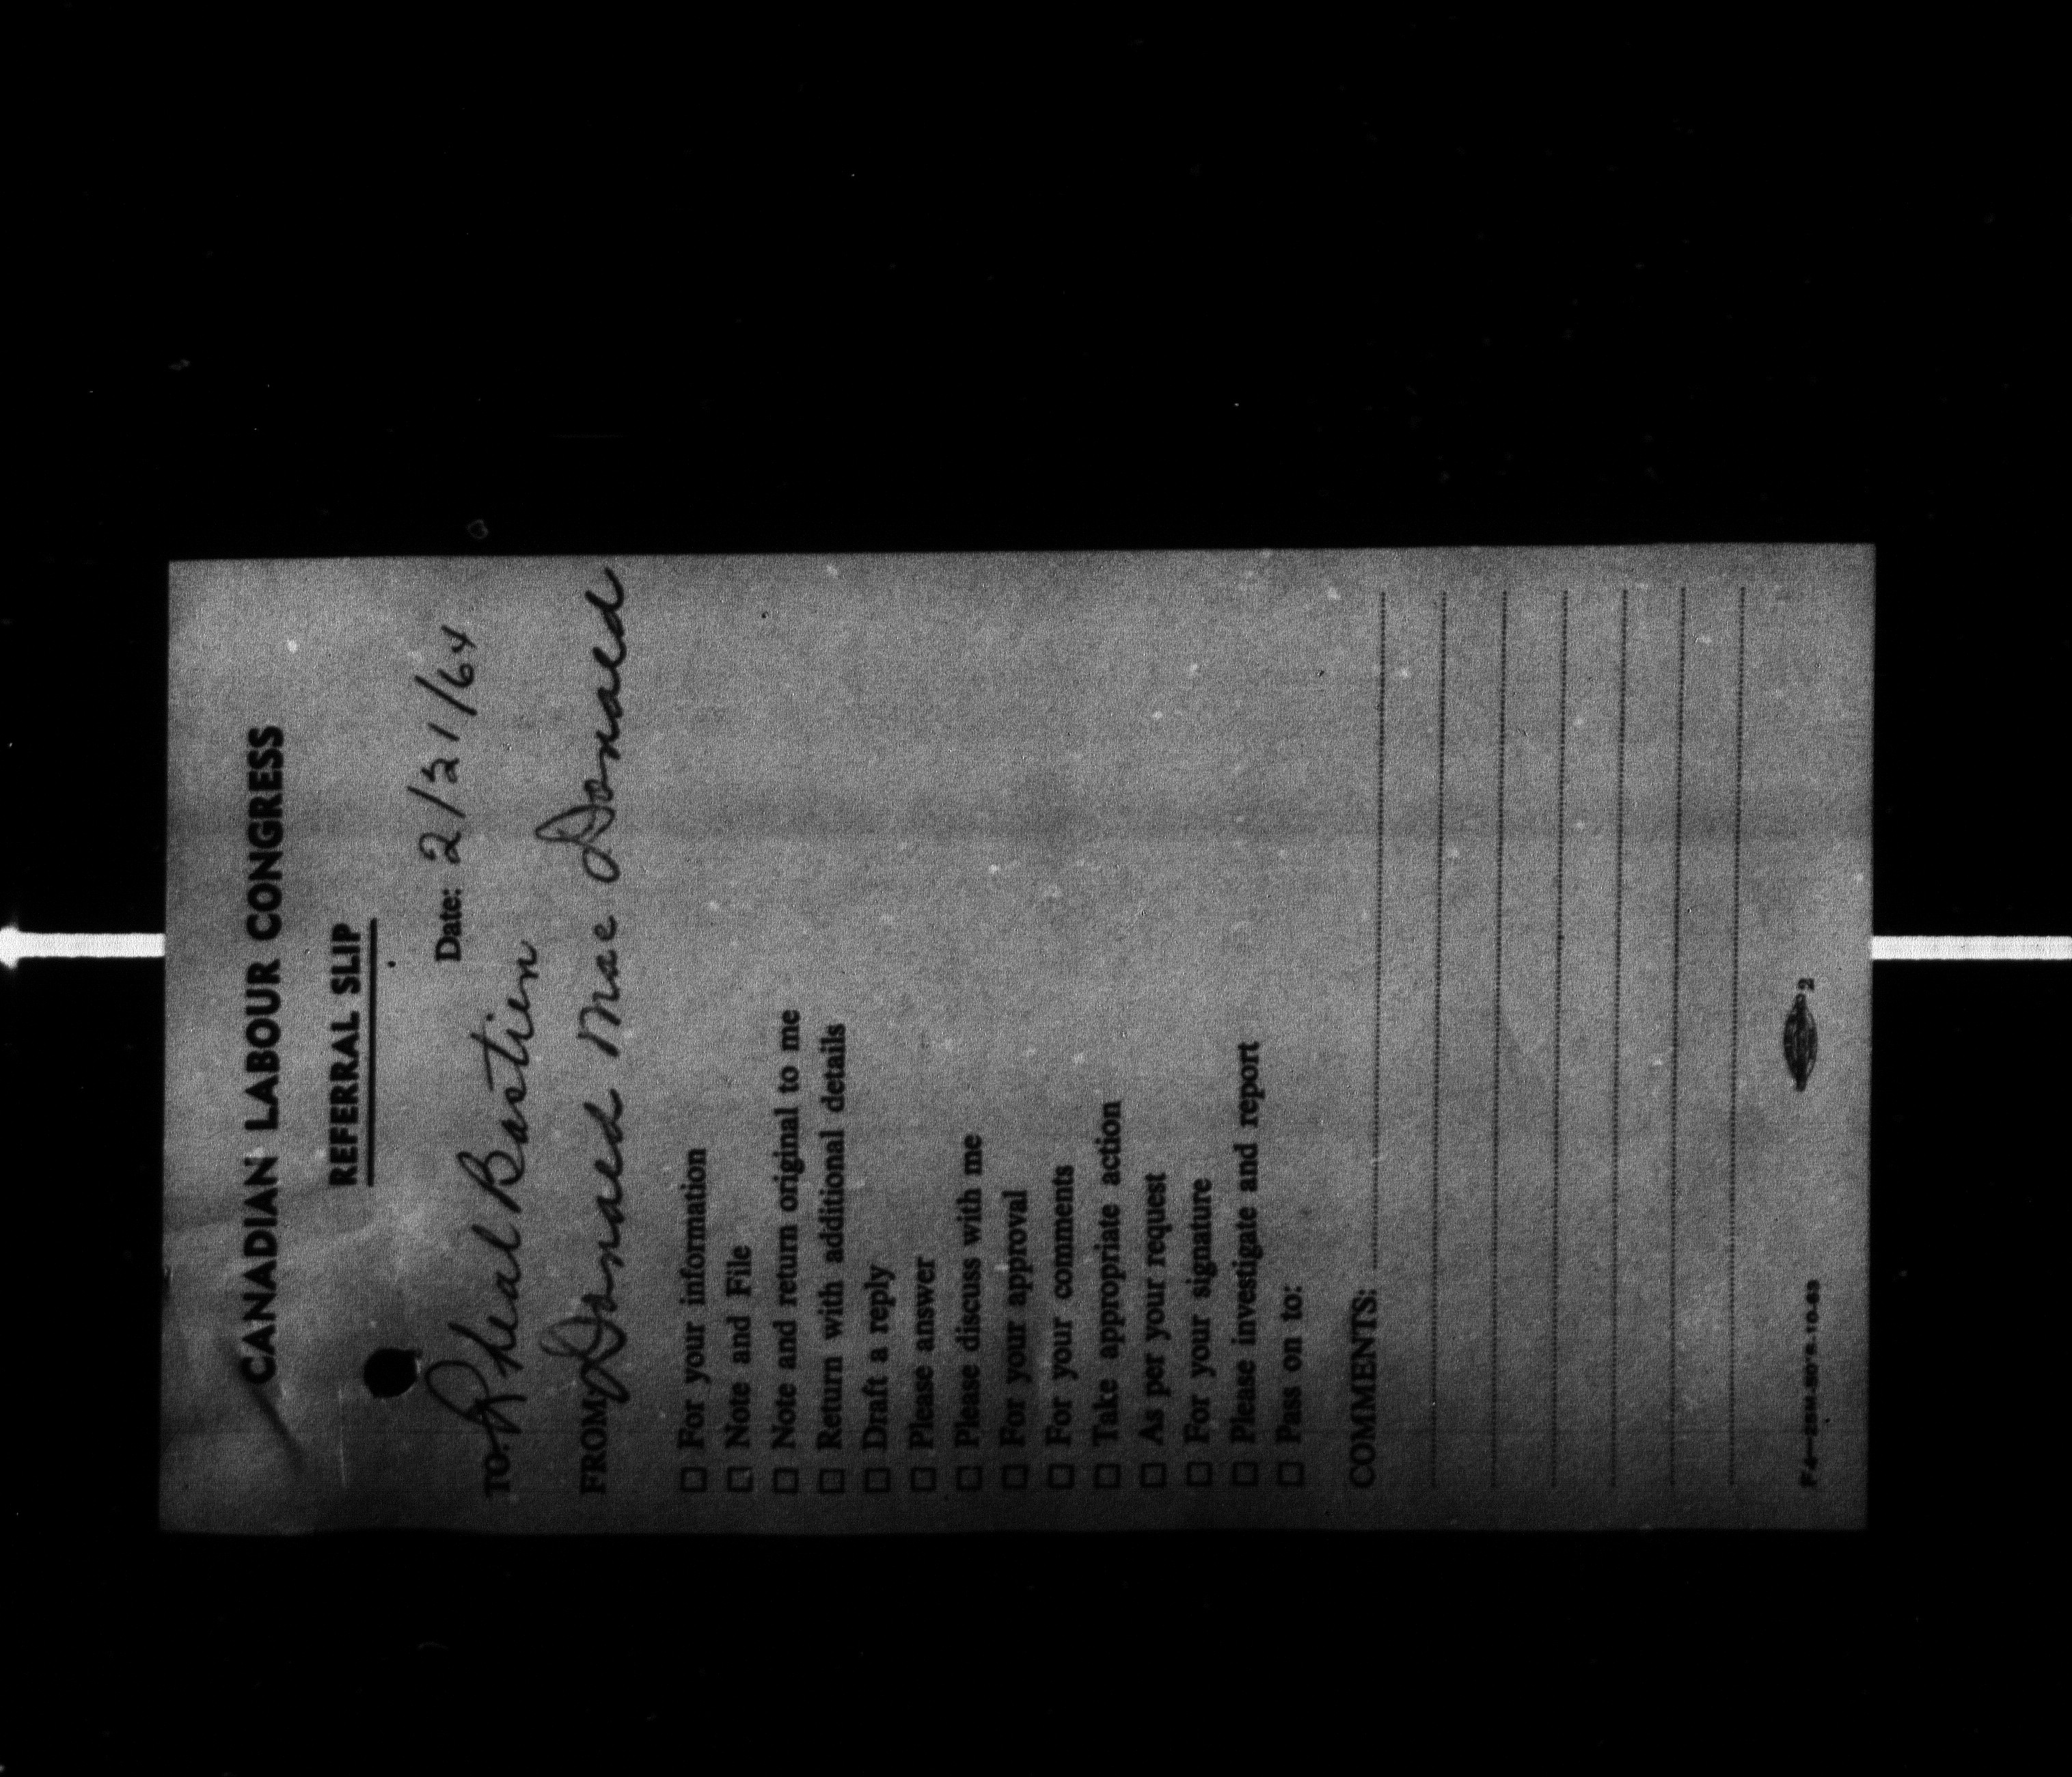 CANADIAN LABOUR CONGRESS
REFERRAL SLIP
Date: 2/21/64
TO: Rheal Bastien
FROM: Donald Mac Donald
☐ For your information
☐ Note and File
☐ Note and return original to me
☐ Return with additional details
☐ Draft a reply
☐ Please answer
☐ Please discuss with me
☐ For your approval
☐ For your comments
☐ Take appropriate action
☐ As per your request
☐ For your signature
☐ Please investigate and report
☐ Pass on to:
COMMENTS:
2